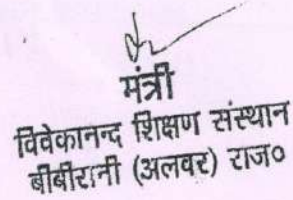 मंत्री
विवेकानन्द शिक्षण संस्थान
बीबीरानी (अलवर) राज०